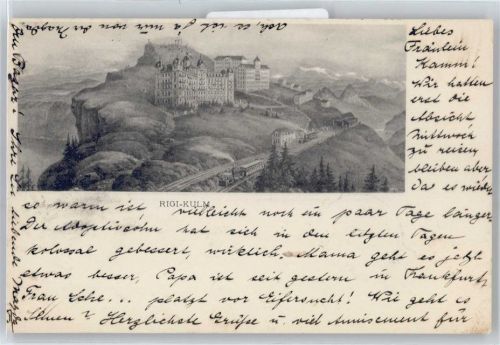 Liebes
Fräulein
Kamm!
Wir hatten
erst die
Absicht
Mittwoch
zu reisen
bleiben aber
Da es wieder
RIGI-KULM
so warm ist vielleicht noch ein paar Tage länger
Der Adoptivsohn hat sich in den letzten Tagen
kolossal gebessert, wirklich. Mama geht es jetzt
etwas besser, Papa ist seit gestern in Frankfurt,
Frau Sche... platzt vor Eifersucht! Wie geht es
Ihnen? Herzlichste Grüße u. viel Amüsement für